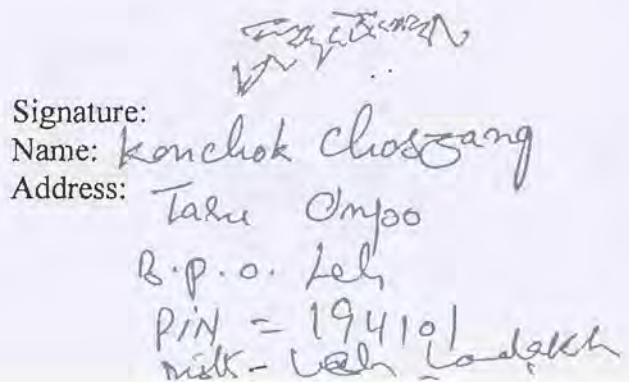 Signature:
Name: Konchok Choszang
Address: Taru Onpoo
B.P.O. Leh
PIN = 194101
Distt - Leh Ladakh